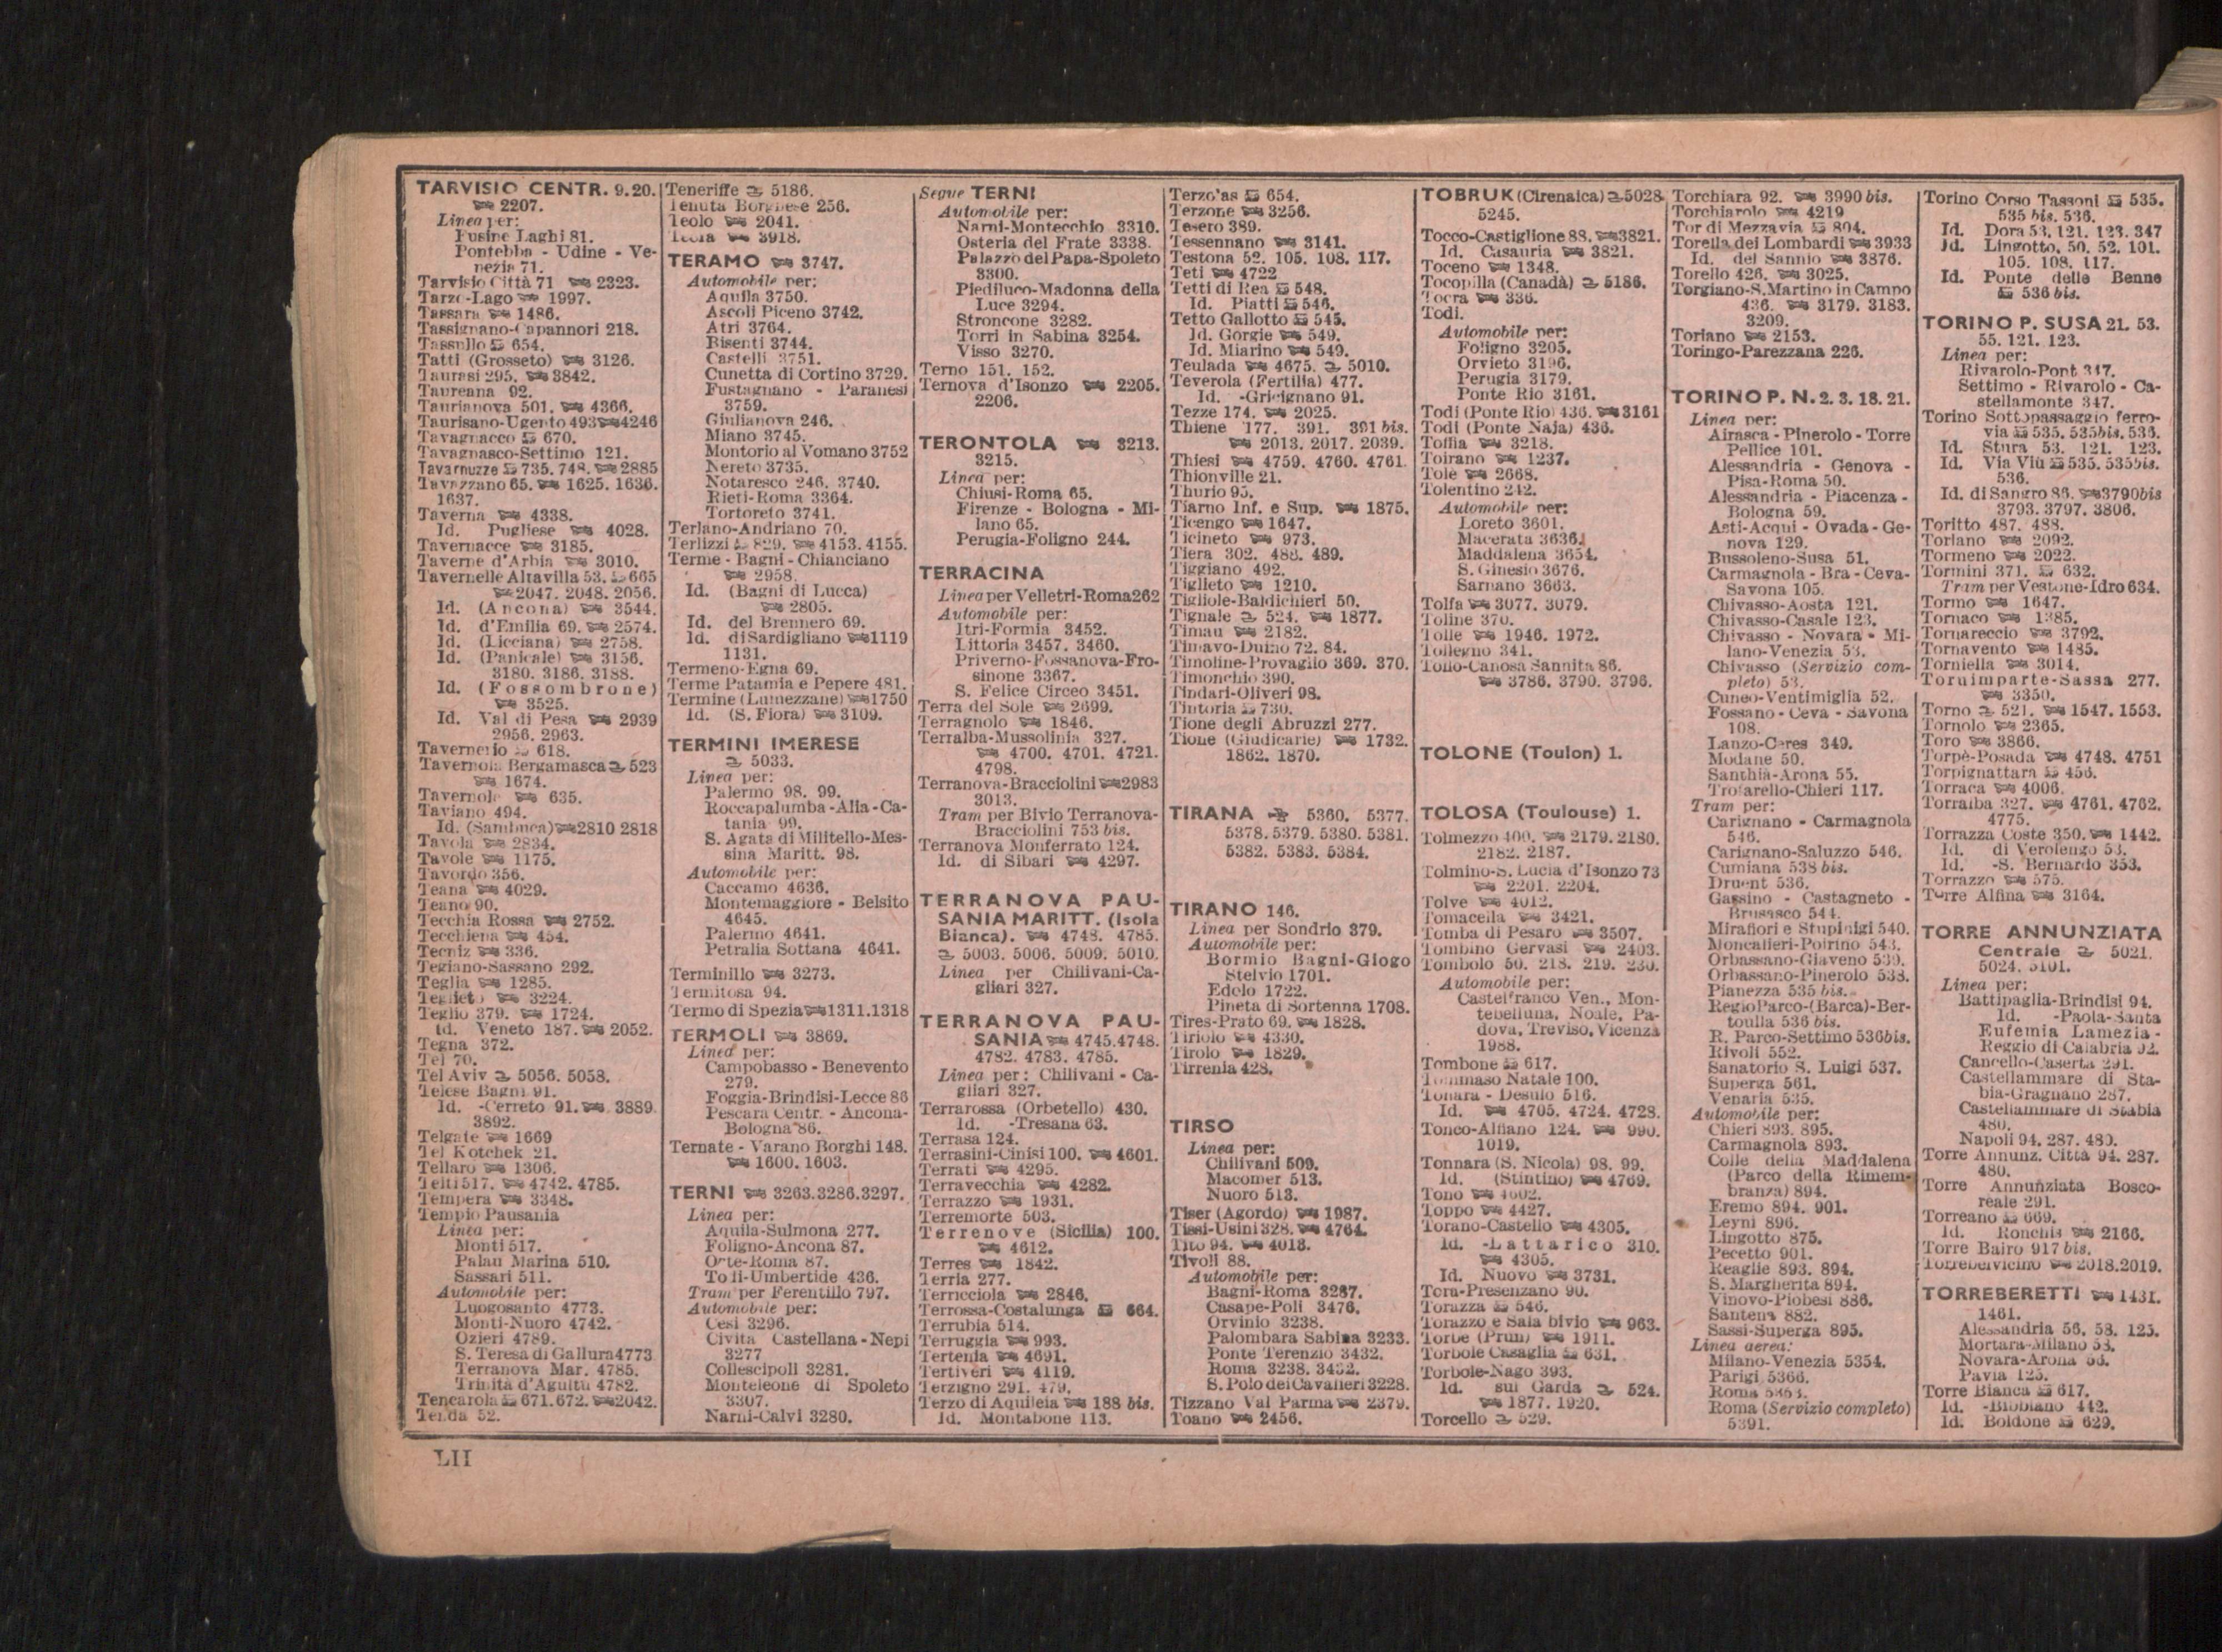 TARVISIO CENTR. 9.20.
2207.
Linea per:
Fusine Laghi 81.
Pontebba - Udine - Ve-
nezia 71.
Tarvisio Città 71 2323.
Tarzo-Lago 1997.
Tassara 1486.
Tassignano-Capannori 218.
Tassullo 654.
Tatti (Grosseto) 3126.
Taurasi 295. 3842.
Taureana 92.
Taurianova 501. 4366.
Taurisano-Ugento 493 4246
Tavagnacco 670.
Tavagnasco-Settimo 121.
Tavarnuzze 735. 748. 2885
Tavazzano 65. 1625. 1636.
1637.
Taverna 4338.
Id. Pugliese 4028.
Tavernacce 3185.
Taverne d'Arbia 3010.
Tavernelle Altavilla 53. 665
2047. 2048. 2056.
Id. (Ancona) 3544.
Id. d'Emilia 69. 2574.
Id. (Licciana) 2758.
Id. (Panicale) 3156.
3180. 3186. 3188.
Id. (Fossombrone)
3525.
Id. Val di Pesa 2939
2956. 2963.
Tavernerio 618.
Tavernola Bergamasca 523
1674.
Tavernole 635.
Taviano 494.
Id. (Sambuca) 2810 2818
Tavola 2834.
Tavole 1175.
Tavordo 356.
Teana 4029.
Teano 90.
Tecchia Rossa 2752.
Tecchiena 454.
Tecniz 336.
Tegiano-Sassano 292.
Teglia 1285.
Teglieto 3224.
Teglio 379. 1724.
Id. Veneto 187. 2052.
Tegna 372.
Tel 70.
Tel Aviv 5056. 5058.
Telese Bagni 91.
Id. -Cerreto 91. 3889.
3892.
Telgate 1669
Tel Kotchek 21.
Tellaro 1306.
Telti 517. 4742. 4785.
Tempera 3348.
Tempio Pausania
Linea per:
Monti 517.
Palau Marina 510.
Sassari 511.
Automobile per:
Luogosanto 4773.
Monti-Nuoro 4742.
Ozieri 4789.
S. Teresa di Gallura 4773
Terranova Mar. 4785.
Trinità d'Agultu 4782.
Tencarola 671. 672. 2042.
Tenda 52.
Teneriffe 5186.
Tenuta Borghese 256.
Teolo 2041.
Teora 3918.
TERAMO 3747.
Automobile per:
Aquila 3750.
Ascoli Piceno 3742.
Atri 3764.
Bisenti 3744.
Castelli 3751.
Cunetta di Cortino 3729.
Fustagnano - Paranesi
3759.
Giulianova 246.
Miano 3745.
Montorio al Vomano 3752
Nereto 3735.
Notaresco 246. 3740.
Rieti-Roma 3364.
Tortoreto 3741.
Terlano-Andriano 70.
Terlizzi 829. 4153. 4155.
Terme - Bagni - Chianciano
2958.
Id. (Bagni di Lucca)
2805.
Id. del Brennero 69.
Id. di Sardigliano 1119
1131.
Termeno-Egna 69.
Terme Patamia e Pepere 481.
Termine (Lumezzane) 1750
Id. (S. Fiora) 3109.
TERMINI IMERESE
5033.
Linea per:
Palermo 98. 99.
Roccapalumba - Alia - Ca-
tania 99.
S. Agata di Militello-Mes-
sina Maritt. 98.
Automobile per:
Caccamo 4636.
Montemaggiore - Belsito
4645.
Palermo 4641.
Petralia Sottana 4641.
Terminillo 3273.
Termitosa 94.
Termo di Spezia 1311.1318
TERMOLI 3869.
Linea per:
Campobasso - Benevento
279.
Foggia-Brindisi-Lecce 86
Pescara Centr. - Ancona-
Bologna 86.
Ternate - Varano Borghi 148.
1600. 1603.
TERNI 3263.3286.3297.
Linea per:
Aquila-Sulmona 277.
Foligno-Ancona 87.
Orte-Roma 87.
Todi-Umbertide 436.
Tram per Ferentillo 797.
Automobile per:
Cesi 3296.
Civita Castellana - Nepi
3277
Collescipoli 3281.
Monteleone di Spoleto
3307.
Narni-Calvi 3280.
Segue TERNI
Automobile per:
Narni-Montecchio 3310.
Osteria del Frate 3338.
Palazzo del Papa-Spoleto
3300.
Piediluco-Madonna della
Luce 3294.
Stroncone 3282.
Torri in Sabina 3254.
Visso 3270.
Terno 151. 152.
Ternova d'Isonzo 2205.
2206.
TERONTOLA 3213.
3215.
Linea per:
Chiusi-Roma 65.
Firenze - Bologna - Mi-
lano 65.
Perugia-Foligno 244.
TERRACINA
Linea per Velletri-Roma 262
Automobile per:
Itri-Formia 3452.
Littoria 3457. 3460.
Priverno-Fossanova-Fro-
sinone 3367.
S. Felice Circeo 3451.
Terra del Sole 2699.
Terragnolo 1846.
Terralba-Mussolinia 327.
4700. 4701. 4721.
4798.
Terranova-Bracciolini 2983
3013.
Tram per Bivio Terranova-
Bracciolini 753 bis.
Terranova Monferrato 124.
Id. di Sibari 4297.
TERRANOVA PAU-
SANIA MARITT. (Isola
Bianca). 4748. 4785.
5003. 5006. 5009. 5010.
Linea per Chilivani-Ca-
gliari 327.
TERRANOVA PAU-
SANIA 4745.4748.
4782. 4783. 4785.
Linea per: Chilivani - Ca-
gliari 327.
Terrarossa (Orbetello) 430.
Id. -Tresana 63.
Terrasa 124.
Terrasini-Cinisi 100. 4601.
Terrati 4295.
Terravecchia 4282.
Terrazzo 1931.
Terremorte 503.
Terrenove (Sicilia) 100.
4612.
Terres 1842.
Terria 277.
Terricciola 2846.
Terrossa-Costalunga 664.
Terrubia 514.
Terruggia 993.
Tertenia 4691.
Tertiveri 4119.
Terzigno 291. 479.
Terzo di Aquileia 188 bis.
Id. Montabone 113.
Terzo'as 654.
Terzone 3256.
Tesero 389.
Tessennano 3141.
Testona 52. 105. 108. 117.
Teti 4722
Tetti di Rea 548.
Id. Piatti 546.
Tetto Gallotto 545.
Id. Gorgie 549.
Id. Miarino 549.
Teulada 4675. 5010.
Teverola (Fertilia) 477.
Id. -Gricignano 91.
Tezze 174. 2025.
Thiene 177. 391. 391 bis.
2013. 2017. 2039.
Thiesi 4759. 4760. 4761.
Thionville 21.
Thurio 95.
Tiarno Inf. e Sup. 1875.
Ticengo 1647.
Ticineto 973.
Tiera 302. 488. 489.
Tiggiano 492.
Tiglieto 1210.
Tigliole-Baldichieri 50.
Tignale 524. 1877.
Timau 2182.
Timavo-Duino 72. 84.
Timoline-Provaglio 369. 370.
Timonchio 390.
Tindari-Oliveri 98.
Tintoria 730.
Tione degli Abruzzi 277.
Tione (Giudicarie) 1732.
1862. 1870.
TIRANA 5360. 5377.
5378. 5379. 5380. 5381.
5382. 5383. 5384.
TIRANO 146.
Linea per Sondrio 379.
Automobile per:
Bormio Bagni-Giogo
Stelvio 1701.
Edolo 1722.
Pineta di Sortenna 1708.
Tires-Prato 69. 1828.
Tiriolo 4330.
Tirolo 1829.
Tirrenia 428.
TIRSO
Linea per:
Chilivani 509.
Macomer 513.
Nuoro 513.
Tiser (Agordo) 1987.
Tissi-Usini 328. 4764.
Tito 94. 4013.
Tivoli 88.
Automobile per:
Bagni-Roma 3237.
Casape-Poli 3476.
Orvinio 3238.
Palombara Sabina 3233.
Ponte Terenzio 3432.
Roma 3238. 3432.
S. Polo dei Cavalieri 3228.
Tizzano Val Parma 2379.
Toano 2456.
TOBRUK (Cirenaica) 5028
5245.
Tocco-Castiglione 88. 3821.
Id. Casauria 3821.
Toceno 1348.
Tocopilla (Canadà) 5186.
Tocra 336.
Todi.
Automobile per:
Foligno 3205.
Orvieto 3196.
Perugia 3179.
Ponte Rio 3161.
Todi (Ponte Rio) 436. 3161
Todi (Ponte Naja) 436.
Toffia 3218.
Toirano 1237.
Tole 2668.
Tolentino 242.
Automobile per:
Loreto 3601.
Macerata 3636.
Maddalena 3654.
S. Ginesio 3676.
Sarnano 3663.
Tolfa 3077. 3079.
Toline 370.
Tolle 1946. 1972.
Tollegno 341.
Tollo-Canosa Sannita 86.
3786. 3790. 3796.
TOLONE (Toulon) 1.
TOLOSA (Toulouse) 1.
Tolmezzo 400. 2179. 2180.
2182. 2187.
Tolmino-S. Lucia d'Isonzo 73
2201. 2204.
Tolve 4012.
Tomacella 3421.
Tomba di Pesaro 3507.
Tombino Gervasi 2403.
Tombolo 50. 218. 219. 230.
Automobile per:
Castelfranco Ven., Mon-
tebelluna, Noale, Pa-
dova, Treviso, Vicenza
1988.
Tombone 617.
Tommaso Natale 100.
Tonara - Desulo 516.
Id. 4705. 4724. 4728.
Tonco-Alfiano 124. 990.
1019.
Tonnara (S. Nicola) 98. 99.
Id. (Stintino) 4769.
Tono 4602.
Toppo 4427.
Torano-Castello 4305.
Id. -Lattarico 310.
4305.
Id. Nuovo 3731.
Tora-Presenzano 90.
Torazza 546.
Torazzo e Sala bivio 963.
Torbe (Prun) 1911.
Torbole Casaglia 631.
Torbole-Nago 393.
Id. sul Garda 524.
1877. 1920.
Torcello 529.
Torchiara 92. 3990 bis.
Torchiarolo 4219
Tor di Mezzavia 804.
Torella dei Lombardi 3933
Id. del Sannio 3876.
Torello 426. 3025.
Torgiano-S. Martino in Campo
436. 3179. 3183.
3209.
Toriano 2153.
Toringo-Parezzana 226.
TORINO P. N. 2. 3. 18. 21.
Linea per:
Airasca - Pinerolo - Torre
Pellice 101.
Alessandria - Genova -
Pisa-Roma 50.
Alessandria - Piacenza -
Bologna 59.
Asti-Acqui - Ovada - Ge-
nova 129.
Bussoleno-Susa 51.
Carmagnola - Bra - Ceva-
Savona 105.
Chivasso-Aosta 121.
Chivasso-Casale 123.
Chivasso - Novara - Mi-
lano-Venezia 53.
Chivasso (Servizio com-
pleto) 53.
Cuneo-Ventimiglia 52.
Fossano - Ceva - Savona
108.
Lanzo-Ceres 349.
Modane 50.
Santhià-Arona 55.
Trofarello-Chieri 117.
Tram per:
Carignano - Carmagnola
546.
Carignano-Saluzzo 546.
Cumiana 538 bis.
Druent 536.
Gassino - Castagneto -
Brusasco 544.
Mirafiori e Stupinigi 540.
Moncalieri-Poirino 543.
Orbassano-Giaveno 539.
Orbassano-Pinerolo 538.
Pianezza 535 bis.
Regio Parco-(Barca)-Ber-
toulla 536 bis.
R. Parco-Settimo 536bis.
Rivoli 552.
Sanatorio S. Luigi 537.
Superga 561.
Venaria 535.
Automobile per:
Chieri 893. 895.
Carmagnola 893.
Colle della Maddalena
(Parco della Rimem-
branza) 894.
Eremo 894. 901.
Leynì 896.
Lingotto 875.
Pecetto 901.
Reaglie 893. 894.
S. Margherita 894.
Vinovo-Piobesi 886.
Santena 882.
Sassi-Superga 895.
Linea aerea:
Milano-Venezia 5354.
Parigi 5366.
Roma 5353.
Roma (Servizio completo)
5391.
Torino Corso Tassoni 535.
535 bis. 536.
Id. Dora 53. 121. 123. 347
Id. Lingotto. 50. 52. 101.
105. 108. 117.
Id. Ponte delle Benne
536 bis.
TORINO P. SUSA 21. 53.
55. 121. 123.
Linea per:
Rivarolo-Pont 347.
Settimo - Rivarolo - Ca-
stellamonte 347.
Torino Sottopassaggio ferro-
via 535. 535bis. 536.
Id. Stura 53. 121. 123.
Id. Via Viù 535. 535bis.
536.
Id. di Sangro 86. 3790bis
3793. 3797. 3806.
Toritto 487. 488.
Torlano 2092.
Tormeno 2022.
Tormini 371. 632.
Tram per Vestone-Idro 634.
Tormo 1647.
Tornaco 1385.
Tornareccio 3792.
Tornavento 1485.
Torniella 3014.
Tornimparte-Sassa 277.
3350.
Torno 521. 1547. 1553.
Tornolo 2365.
Toro 3866.
Torpè-Posada 4748. 4751
Torpignattara 456.
Torraca 4006.
Torralba 327. 4761. 4762.
4775.
Torrazza Coste 350. 1442.
Id. di Verolengo 53.
Id. -S. Bernardo 353.
Torrazzo 575.
Torre Alfina 3164.
TORRE ANNUNZIATA
Centrale 5021.
5024. 5101.
Linea per:
Battipaglia-Brindisi 94.
Id. -Paola-Santa
Eufemia Lamezia -
Reggio di Calabria 92.
Cancello-Caserta 291.
Castellammare di Sta-
bia-Gragnano 287.
Castellammare di Stabia
480.
Napoli 94. 287. 480.
Torre Annunz. Città 94. 287.
480.
Torre Annunziata Bosco-
reale 291.
Torreano 669.
Id. Ronchis 2166.
Torre Bairo 917 bis.
Torrebelvicino 2018.2019.
TORREBERETTI 1431.
1461.
Alessandria 56. 58. 125.
Mortara-Milano 58.
Novara-Arona 56.
Pavia 125.
Torre Bianca 617.
Id. -Bibbiano 442.
Id. Boldone 629.
LII